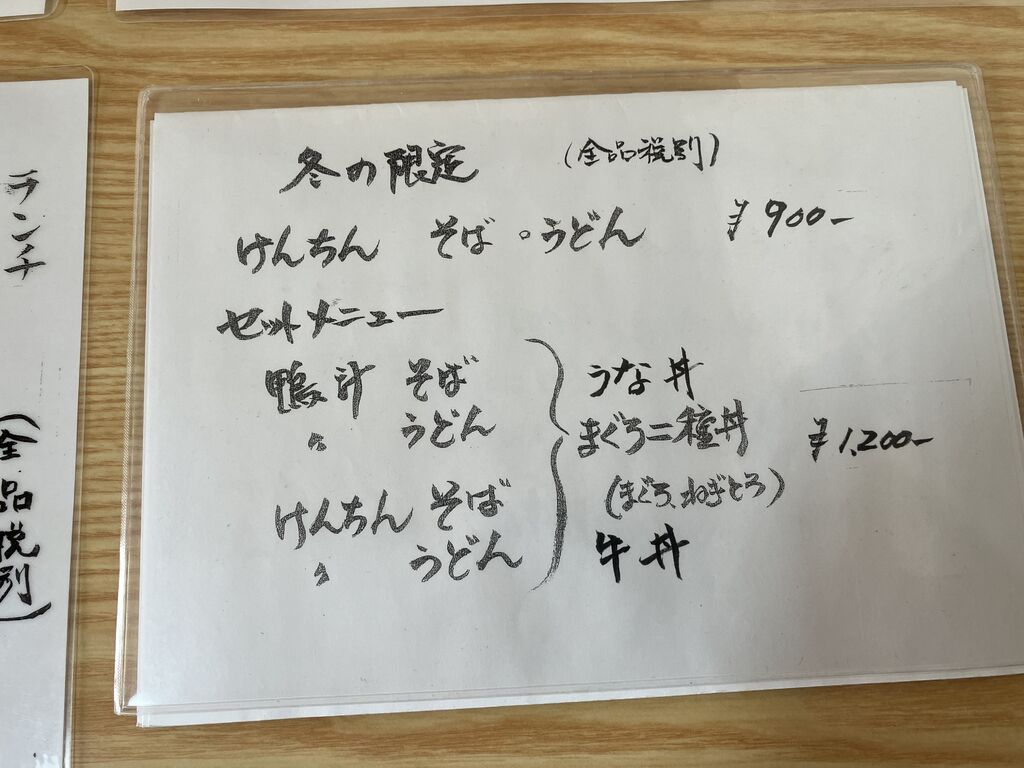 冬の限定 (全品税別)
けんちん そば・うどん ¥900-
セットメニュー
鴨汁 そば うな丼
〃 うどん まぐろ二種丼 ¥1,200-
(まぐろ、ねぎとろ)
けんちん そば
〃 うどん 牛丼
ランチ
(全品税別)